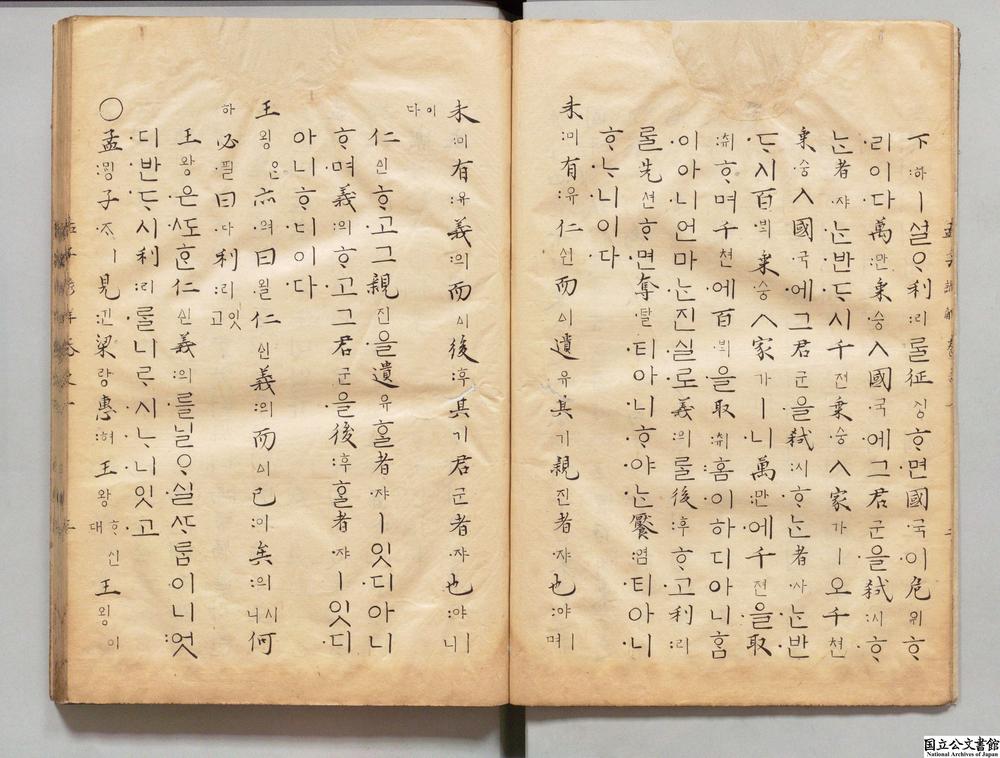 下:하ㅣ설ᄋᆞ利·리ᄅᆞᆯ征졍ᄒᆞ면國·국이危위ᄒᆞ
리이다萬:만乘·승ㅅ國·국에그君군을弑:시ᄒᆞ
ᄂᆞᆫ者·쟈ᄂᆞᆫ반ᄃᆞ시千쳔乘·승ㅅ家가ㅣ오千쳔
乘·승ㅅ國·국에그君군을弑:시ᄒᆞᄂᆞᆫ者·쟈ᄂᆞᆫ반
ᄃᆞ시百·ᄇᆡᆨ乘·승ㅅ家가ㅣ니萬:만에千쳔을取
:ᄎᆔᄒᆞ며千쳔에百·ᄇᆡᆨ을取:ᄎᆔ홈이하디아니홈
이아니언마ᄂᆞᆫ진실로義:의ᄅᆞᆯ後:후ᄒᆞ고利:리
ᄅᆞᆯ先션ᄒᆞ면奪·탈티아니ᄒᆞ야ᄂᆞᆫ饜:염티아니
ᄒᆞᄂᆞ니이다
未:미有:유仁인而ᅀᅵ遺유其기親친者·쟈也:야ㅣ며
未:미有:유義:의而ᅀᅵ後:후其기君군者·쟈也:야ㅣ니이다
仁인ᄒᆞ고그親친을遺유ᄒᆞᆯ者·쟈ㅣ잇디아니
ᄒᆞ며義:의ᄒᆞ고그君군을後:후ᄒᆞᆯ者·쟈ㅣ잇디
아니ᄒᆞ디이다
王왕은亦·역曰·왈仁인義:의而ᅀᅵ已:이矣:의시니何
하必·필曰·왈利:리잇고
王왕은ᄯᅩᄒᆞᆫ仁인義:의ᄅᆞᆯ닐ᄋᆞ실ᄯᆞᄅᆞᆷ이니엇
디반ᄃᆞ시利:리ᄅᆞᆯ니ᄅᆞ시ᄂᆞ니잇고
○孟:ᄆᆡᆼ子·ᄌᆞㅣ見:견梁량惠:혜王왕대ᄒᆞ신王왕이